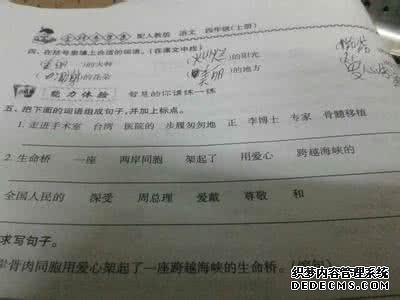 配人教版 语文 四年级(上册)
四、在括号里填上合适的词语。(在课文中找)
( )的火种 (灿烂)的阳光
( )的花朵 (美丽)的地方
能力体验 智慧的你课练一练
五、把下面的词语组成句子,并加上标点。
1. 走进手术室 台湾 医院的 步履匆匆地 正 李博士 专家 骨髓移植
2. 生命桥 一座 两岸同胞 架起了 用爱心 跨越海峡的
全国人民的 深受 周总理 爱戴 尊敬 和
求写句子。
骨肉同胞用爱心架起了一座跨越海峡的生命桥。(缩句)
本图片来源自网络
http://www.lcqxs.com